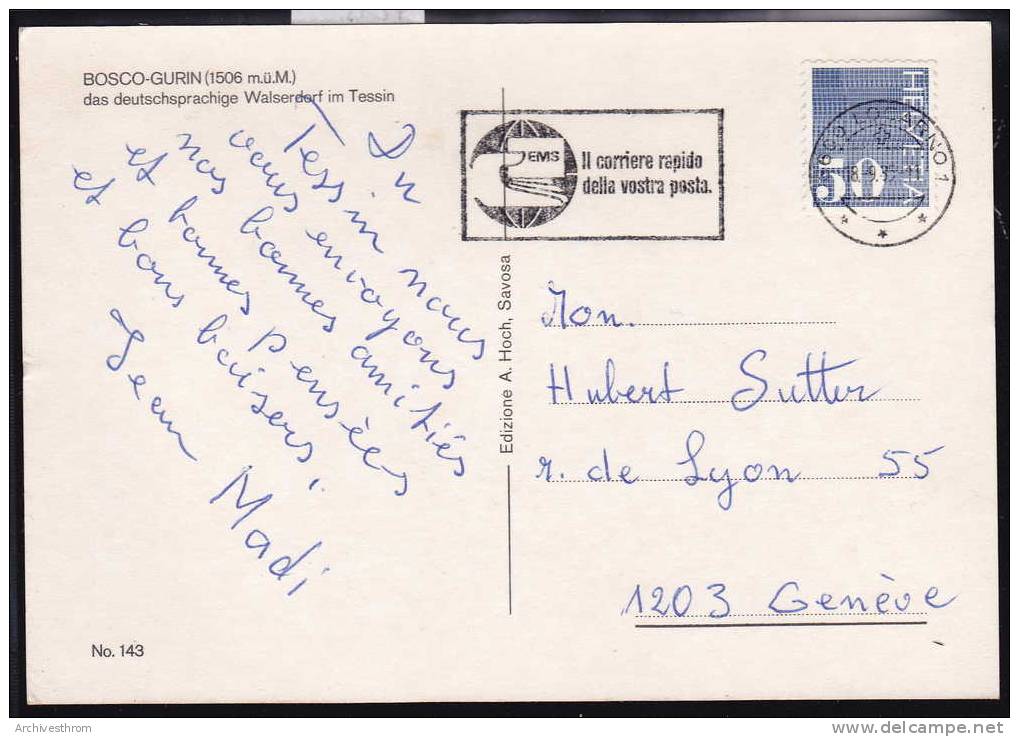 BOSCO-GURIN (1506 m.ü.M.)
das deutschsprachige Walserdorf im Tessin
Du
Tessin nous
vous envoyons
nos bonnes amitiés
et bonnes pensées
et bons baisers.
Jean Madi
No. 143
Edizione A. Hoch, Savosa
EMS
Il corriere rapido
della vostra posta.
HELVETIA
50
LOCARNO 1
Mon.
Hubert Sutter
r. de Lyon 55
1203 Genève
Archivesthrom
delcampe.net